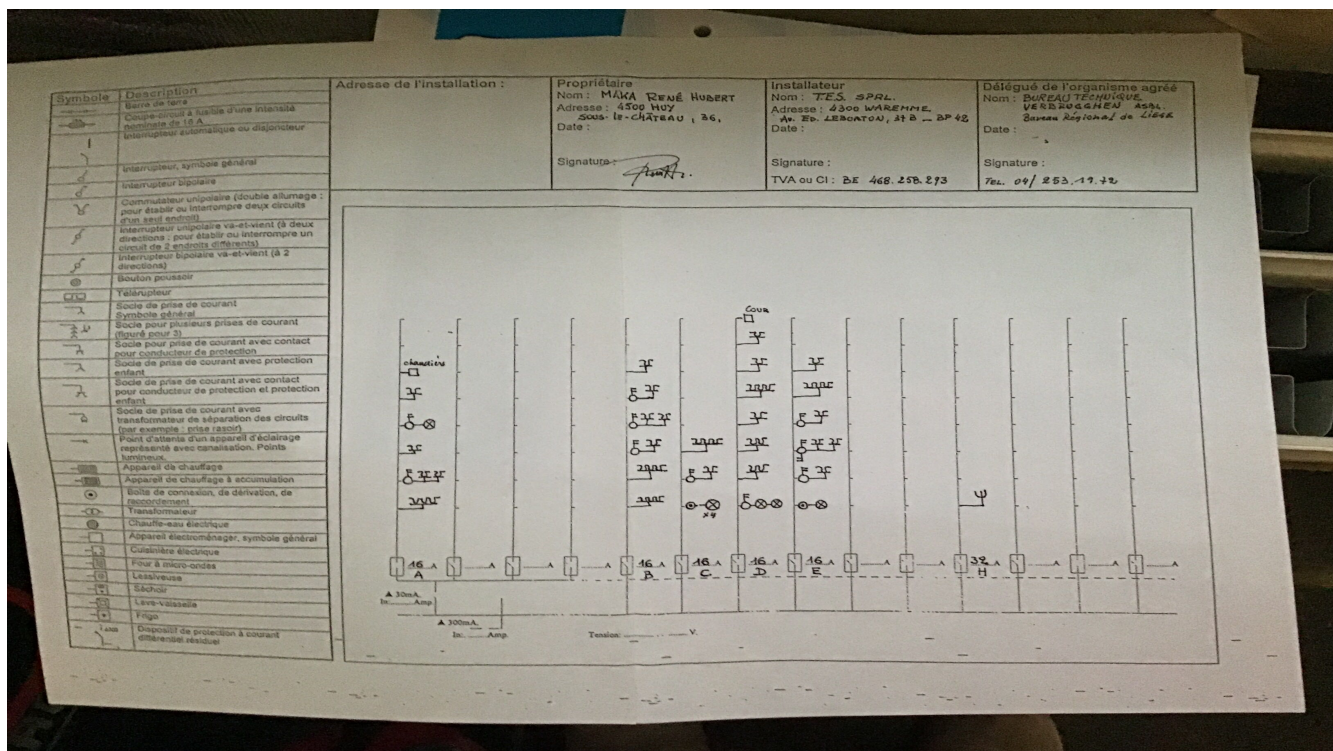 Symbole
Description
Barre de terre
Coupe-circuit à fusible d'une intensité
nominale de 16 A
Interrupteur automatique ou disjoncteur
Interrupteur, symbole général
Interrupteur bipolaire
Commutateur unipolaire (double allumage :
pour établir ou interrompre deux circuits
d'un seul endroit)
Interrupteur unipolaire va-et-vient (à deux
directions : pour établir ou interrompre un
circuit de 2 endroits différents)
Interrupteur bipolaire va-et-vient (à 2
directions)
Bouton poussoir
Télérupteur
Socle de prise de courant
Symbole général
Socle pour plusieurs prises de courant
(figuré pour 3)
Socle pour prise de courant avec contact
pour conducteur de protection
Socle de prise de courant avec protection
enfant
Socle de prise de courant avec contact
pour conducteur de protection et protection
enfant
Socle de prise de courant avec
transformateur de séparation des circuits
(par exemple : prise rasoir)
Point d'attente d'un appareil d'éclairage
représenté avec canalisation. Points
lumineux.
Appareil de chauffage
Appareil de chauffage à accumulation
Boîte de connexion, de dérivation, de
raccordement
Transformateur
Chauffe-eau électrique
Appareil électroménager, symbole général
Cuisinière électrique
Four à micro-ondes
Lessiveuse
Séchoir
Lave-vaisselle
Frigo
Dispositif de protection à courant
différentiel résiduel
Adresse de l'installation :
Propriétaire
Nom : MAKA RENÉ HUBERT
Adresse : 4500 HUY
SOUS-LE-CHÂTEAU, 36,
Date :
Signature :
Installateur
Nom : T.E.S. SPRL.
Adresse : 4300 WAREMME
Av. ED. LEBONTON, 37 B - BP 42
Date :
Signature :
TVA ou CI : BE 468.258.293
Délégué de l'organisme agréé
Nom : BUREAU TECHNIQUE
VERBRUGGHEN ASBL.
Bureau Régional de LIEGE
Date :
Signature :
TEL. 04/ 253.19.72
Cour
chaudière
x4
16 A A A A 16 A 16 A 16 A 16 A A A 32 A A A A
A B C D E H
▲ 30mA.
In: Amp
▲ 300mA.
In: Amp.
Tension: V.